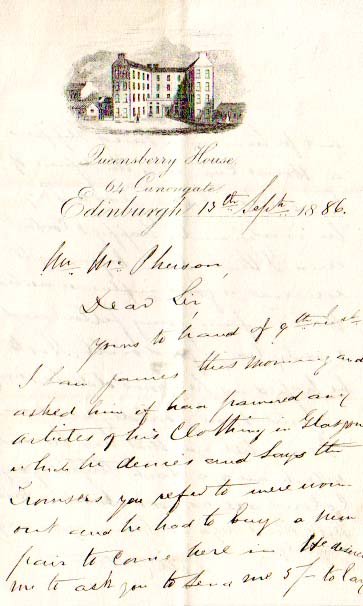 Queensberry House,
64 Canongate
Edinburgh 13th Septr 1886.
Mr McPherson,
Dear Sir,
yours to hand of 9th inst
I saw James this morning and
asked him if he had pawned any
articles of his clothing in Glasgow
which he denies and says the
Trowsers you refer to were worn
out and he had to buy a new
pair to come here in. He desires
me to ask you to send me 5/- to